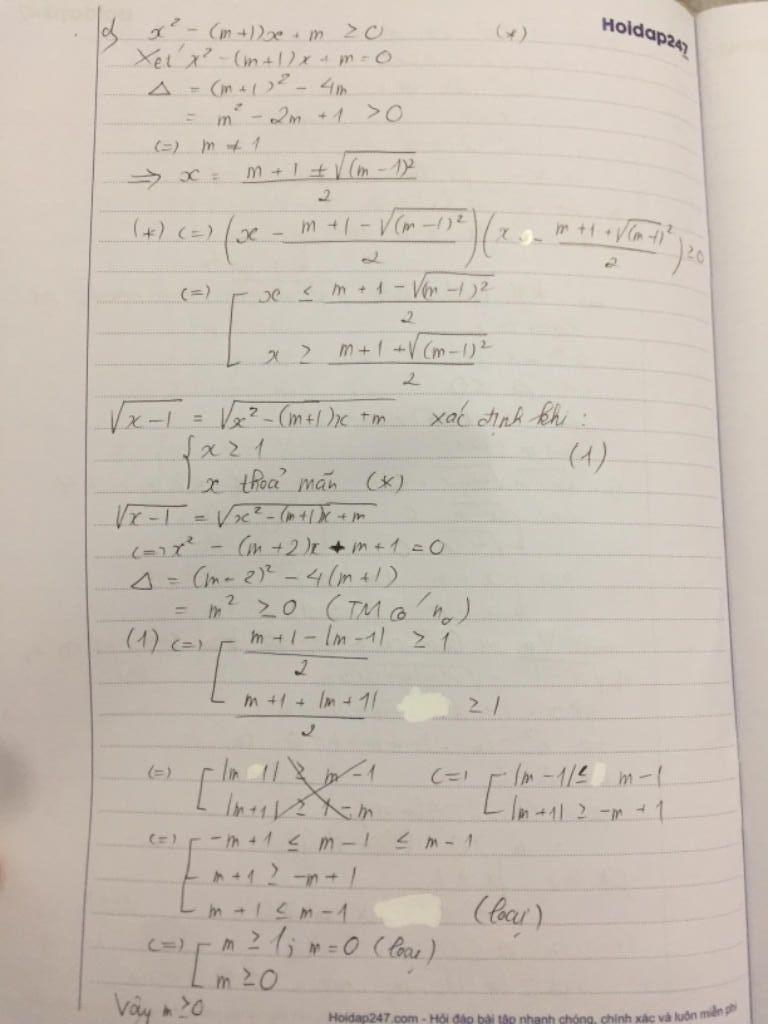 d) x² - (m+1)x + m ≥ 0 (*) Hoidap247
Xét x² - (m+1)x + m = 0
Δ = (m+1)² - 4m
= m² - 2m + 1 > 0
(=) m ≠ 1
=> x = (m + 1 ± √(m-1)²)/2
(*) (=) (x - (m+1-√(m-1)²)/2)(x - (m+1+√(m-1)²)/2) ≥ 0
(=) [ x ≤ (m+1-√(m-1)²)/2
x ≥ (m+1+√(m-1)²)/2
√x-1 = √x²-(m+1)x+m xác định khi :
{ x ≥ 1 (1)
x thoả mãn (*)
√x-1 = √x²-(m+1)x+m
(=) x² - (m+2)x + m+1 = 0
Δ = (m-2)² - 4(m+1)
= m² ≥ 0 (TM có no)
(1) (=) [ (m+1-|m-1|)/2 ≥ 1
(m+1+|m+1|)/2 ≥ 1
(=) [ |m 1| ≥ m-1 (=) [ |m-1| ≤ m-1
|m+1| ≥ 1-m |m+1| ≥ -m+1
(=) [ -m+1 ≤ m-1 ≤ m-1
m+1 ≥ -m+1
m+1 ≤ m-1 (loại)
(=) [ m ≥ 1; m=0 (loại)
m ≥ 0
Vậy m ≥ 0
Hoidap247.com - Hỏi đáp bài tập nhanh chóng, chính xác và luôn miễn phí